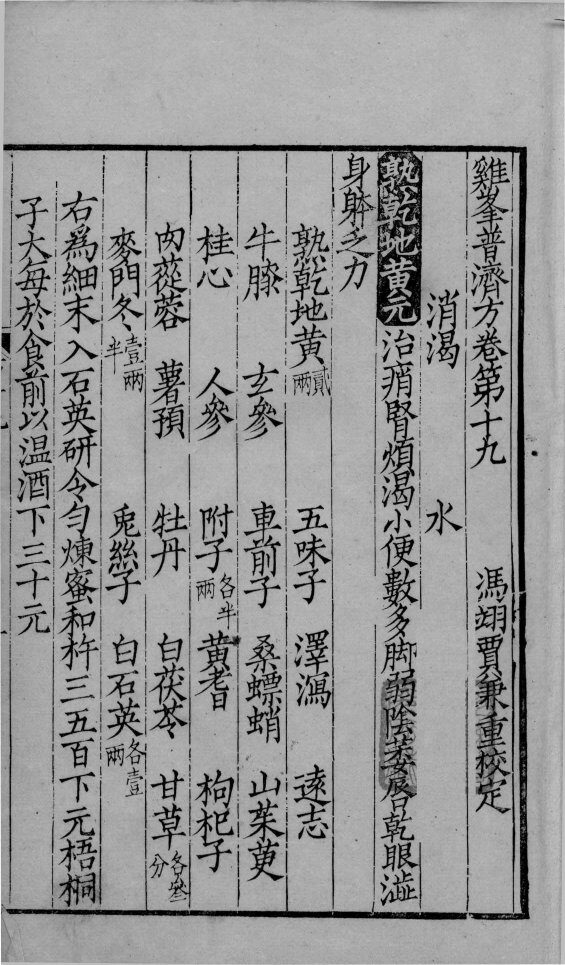 雞峯普濟方卷第十九　馮翊賈兼重校定
消渴　水
熟乾地黄元治痟腎煩渴小便數多脚弱陰萎唇乾眼澁
身躰乏力
熟乾地黄貳兩　五味子　澤瀉　遠志
牛膝　玄參　車前子　桑螵蛸　山茱萸
桂心　人參　附子各半兩　黄耆　枸杞子
肉蓯蓉　薯預　牡丹　白茯苓　甘草各叁分
麥門冬壹兩半　兎絲子　白石英各壹兩
右爲細末入石英研令匀煉蜜和杵三五百下元梧桐
子大每於食前以温酒下三十元